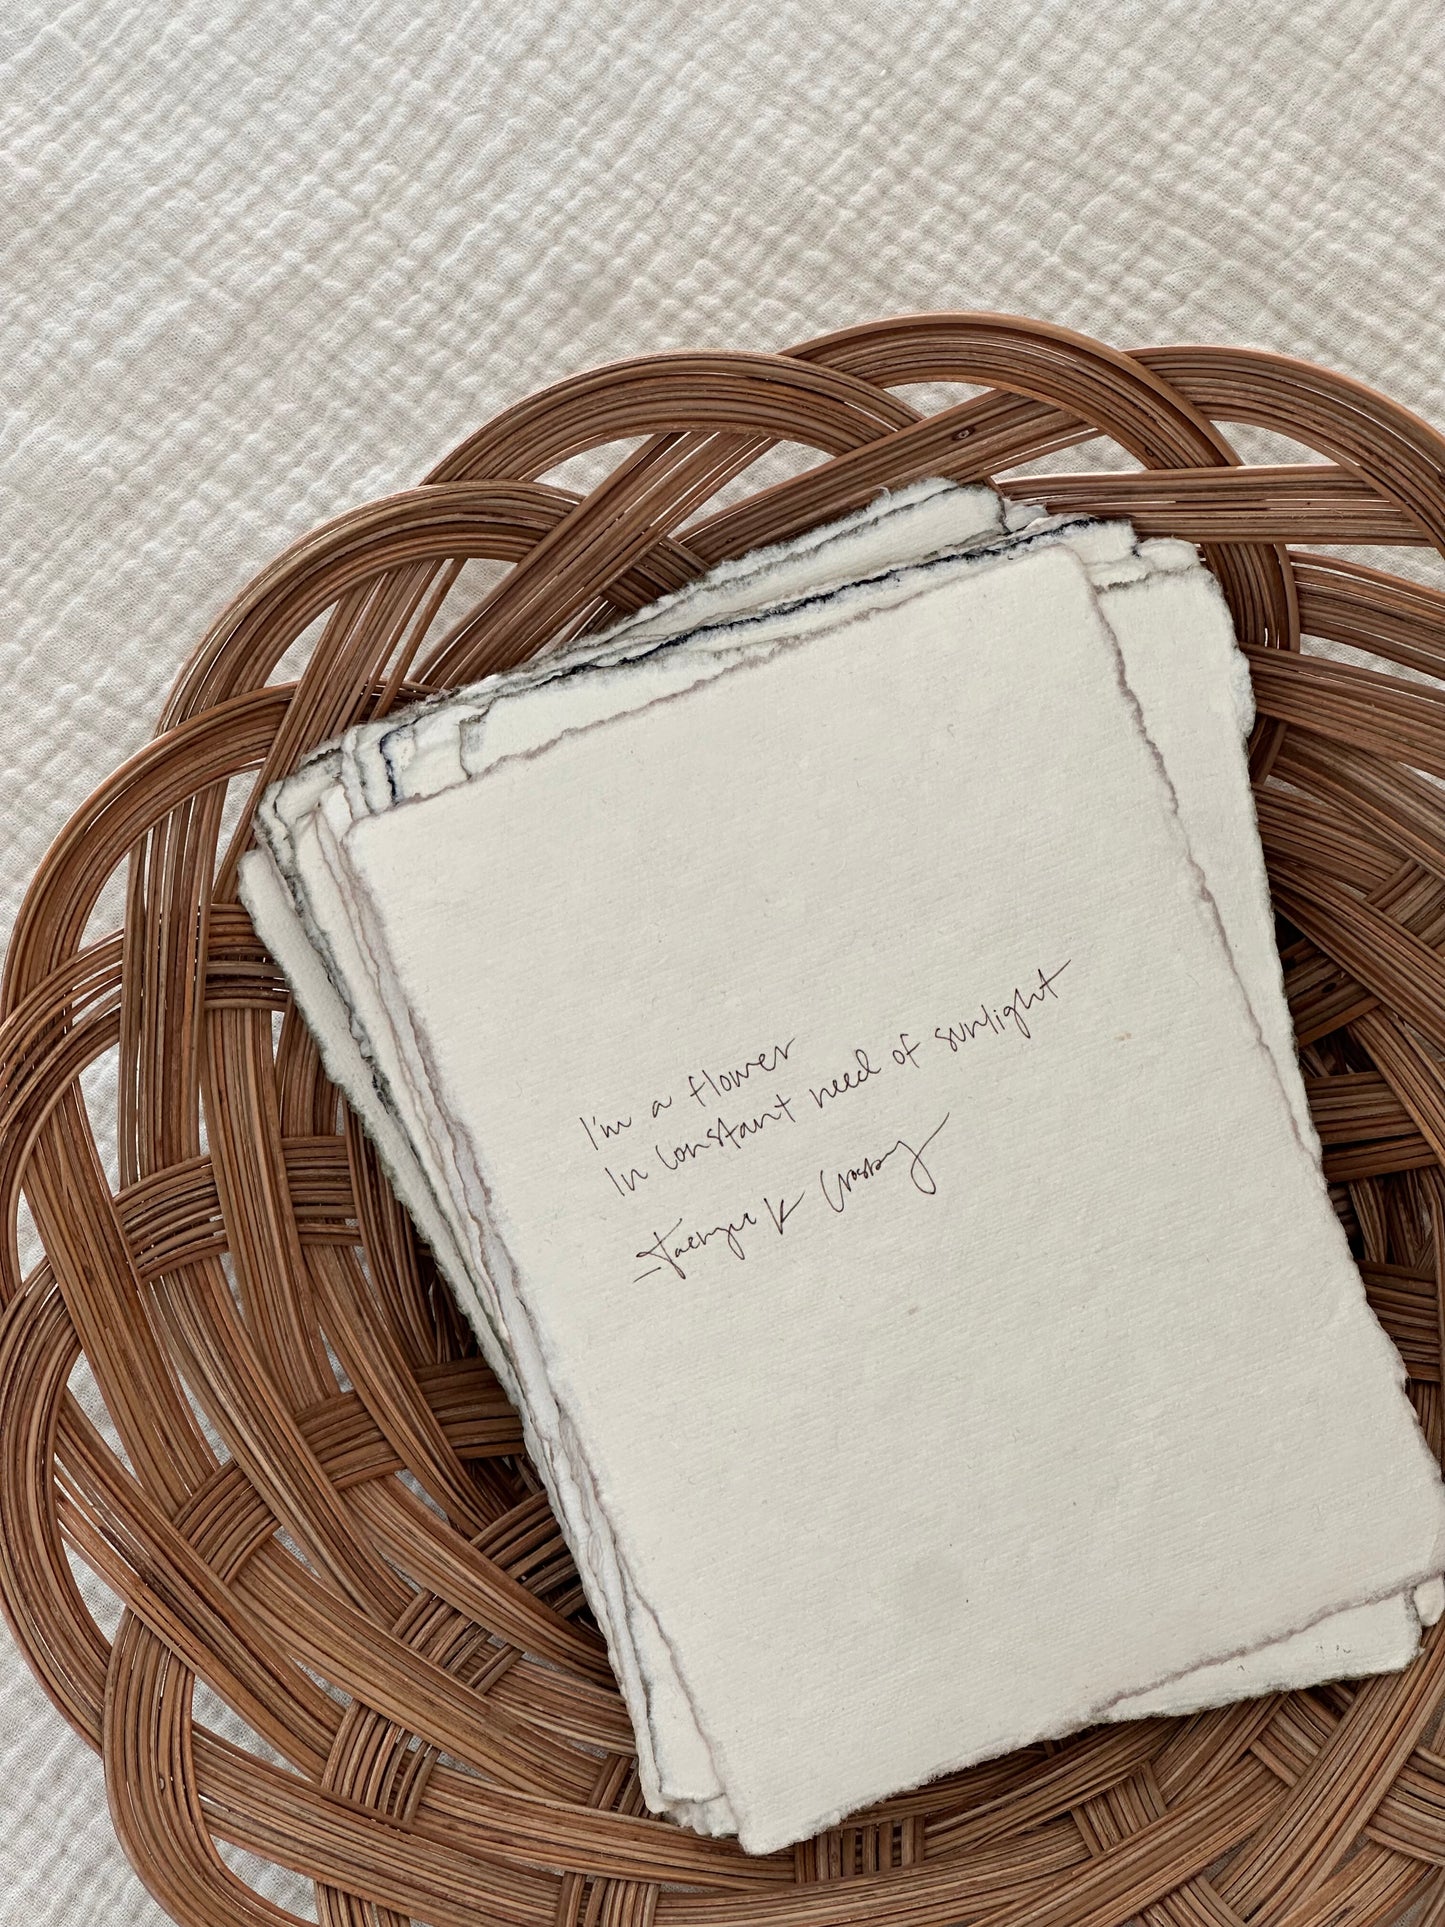 I'm a flower
In constant need of sunlight
K Crosby